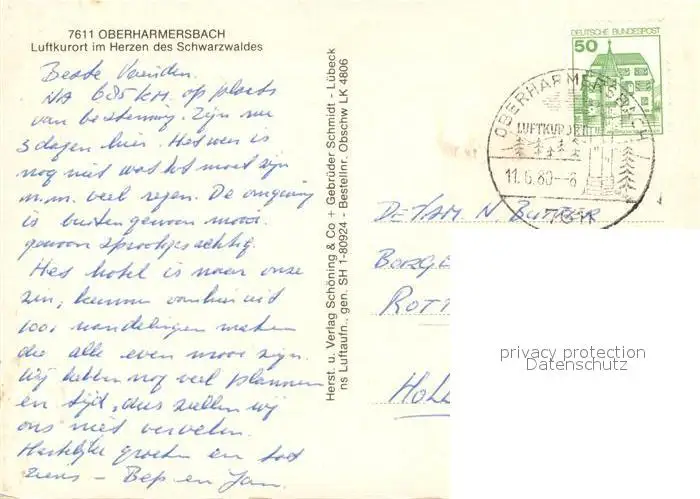 7611 OBERHARMERSBACH
Luftkurort im Herzen des Schwarzwaldes
Beste Vrienden.
NA 685 KM. op plaats
van bestemming. Zijn nu
3 dagen hier. Het weer is
nog niet wat het moet zijn
n.m. veel regen. De omgeving
is buitengewoon mooi.
gewoon sprookjesachtig.
Het hotel is naar onze
zin, kunnen vanhier uit
100x wandelingen maken
die alle even mooi zijn.
Wij hebben nog veel plannen
en tijd, dus zullen wij
ons niet vervelen.
Hartelijke groeten en tot
ziens - Bep en Jan.
Herst. u. Verlag Schöning & Co + Gebrüder Schmidt - Lübeck
ns Luftaufn., gen. SH 1-80924 - Bestellnr. Obschw LK 4806
DEUTSCHE BUNDESPOST
50
OBERHARMERSBACH
LUFTKURORT
11.6.80-8
7611
De FAM N. 
HOL
privacy protection
Datenschutz